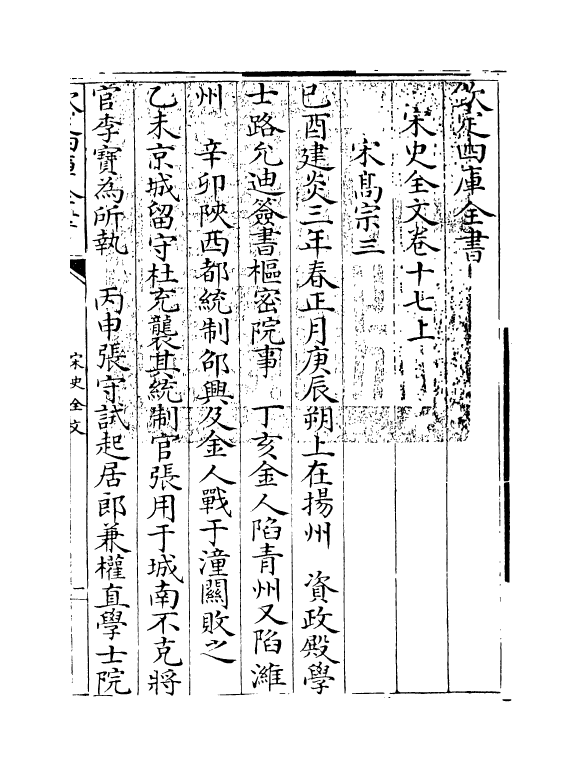 欽定四庫全書
宋史全文卷十七上
宋髙宗三
己酉建炎三年春正月庚辰朔上在揚州　資政殿學
士路允迪簽書樞密院事　丁亥金人陷青州又陷濰
州　辛卯陜西都統制邵興及金人戰于潼關敗之
乙未京城留守杜充襲其統制官張用于城南不克將
官李寶為所執　丙申張守試起居郎兼權直學士院
宋史全文